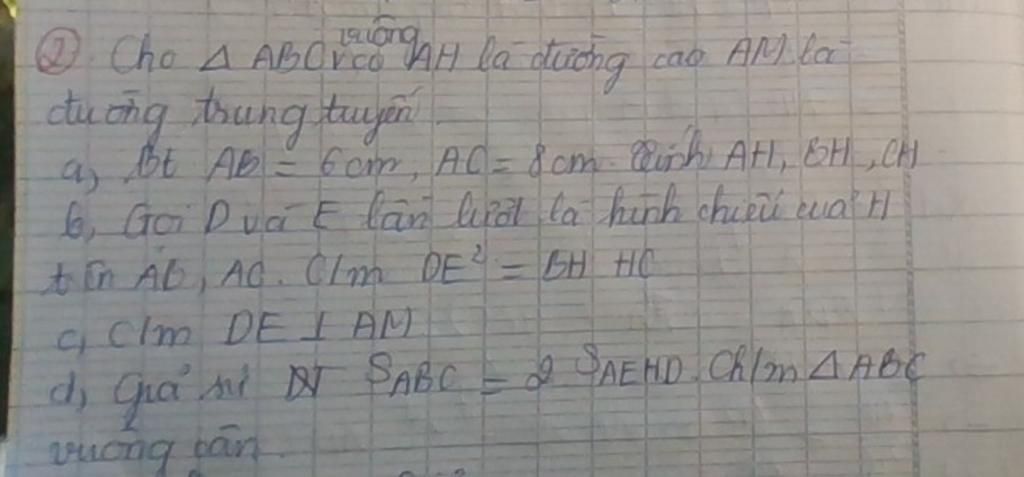 ② Cho △ ABC vuông có AH là đường cao AM là
đường trung tuyến
a, Bt AB = 6cm, AC = 8cm. Tính AH, BH, CH
b, Gọi D và E lần lượt là hình chiếu của H
trên AB, AC. C/m DE² = BH HC
c, C/m DE ⊥ AM
d, Giả sử DT S_ABC = 2 S_AEHD. Ch/m △ ABC
vuông cân.